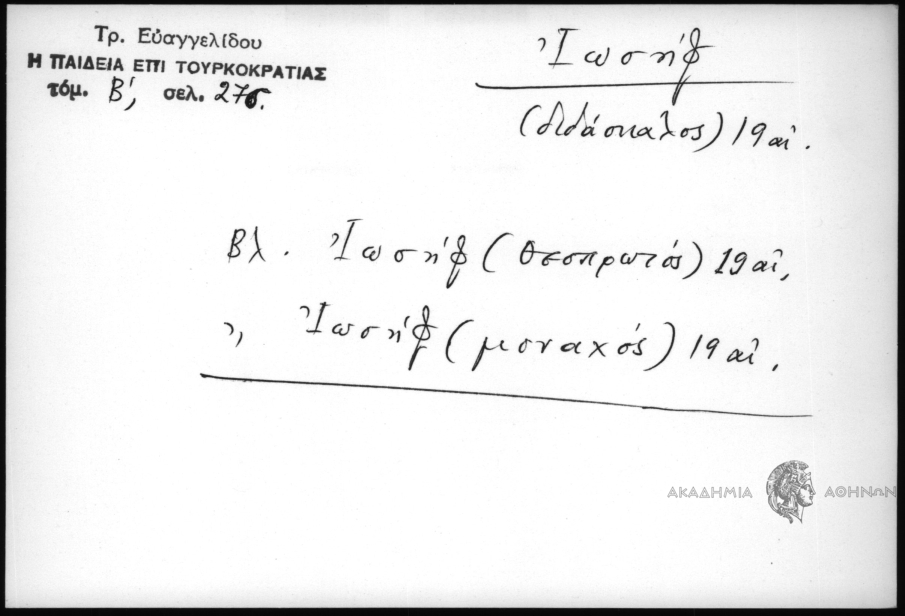 Τρ. Εὐαγγελίδου
Η ΠΑΙΔΕΙΑ ΕΠΙ ΤΟΥΡΚΟΚΡΑΤΙΑΣ
τόμ. Β', σελ. 276.
Ἰωσήφ
(διδάσκαλος) 19 αἰ.
Βλ. Ἰωσήφ (Θεσπρωτός) 19 αἰ.
,, Ἰωσήφ (μοναχός) 19 αἰ.
ΑΚΑΔΗΜΙΑ ΑΘΗΝΩΝ